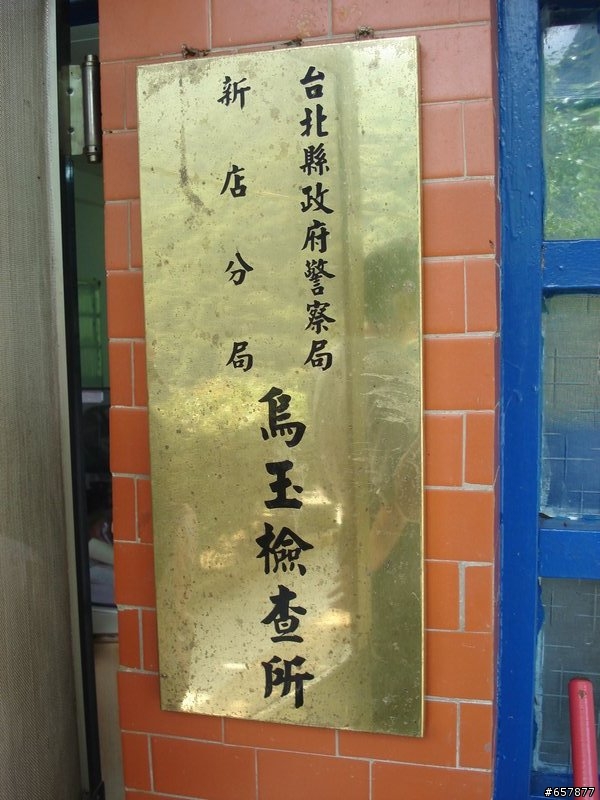 台北縣政府警察局
新店分局
烏玉檢查所
#657877